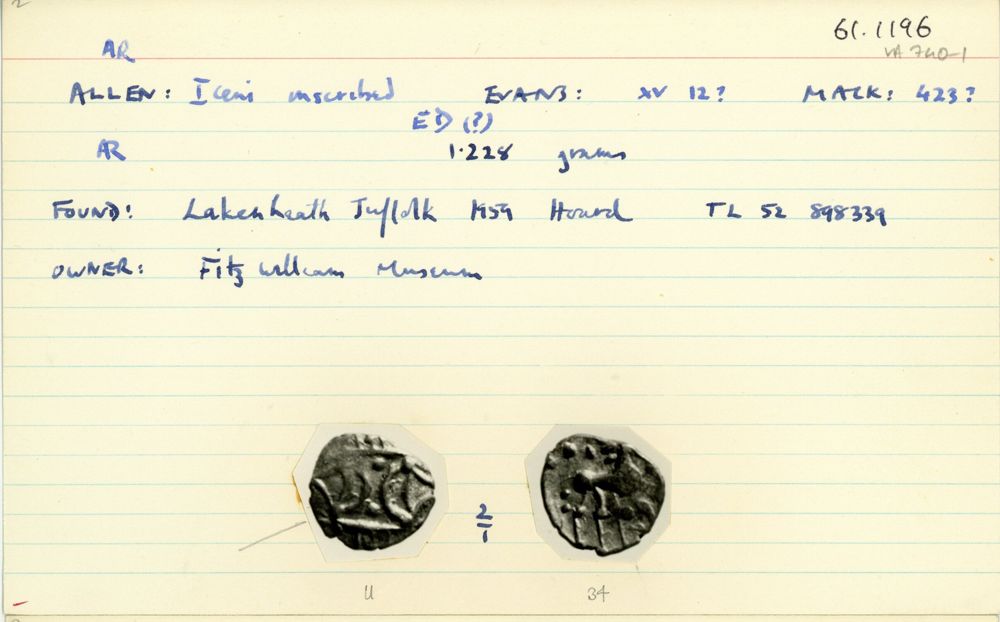 61.1196
AR
VA 740-1
ALLEN: Iceni inscribed EVANS: XV 12? MACK: 423?
ED (?)
AR 1.228 grams
FOUND: Lakenheath Suffolk 1959 Hoard TL 52 898339
OWNER: Fitzwilliam Museum
2
1
11 34